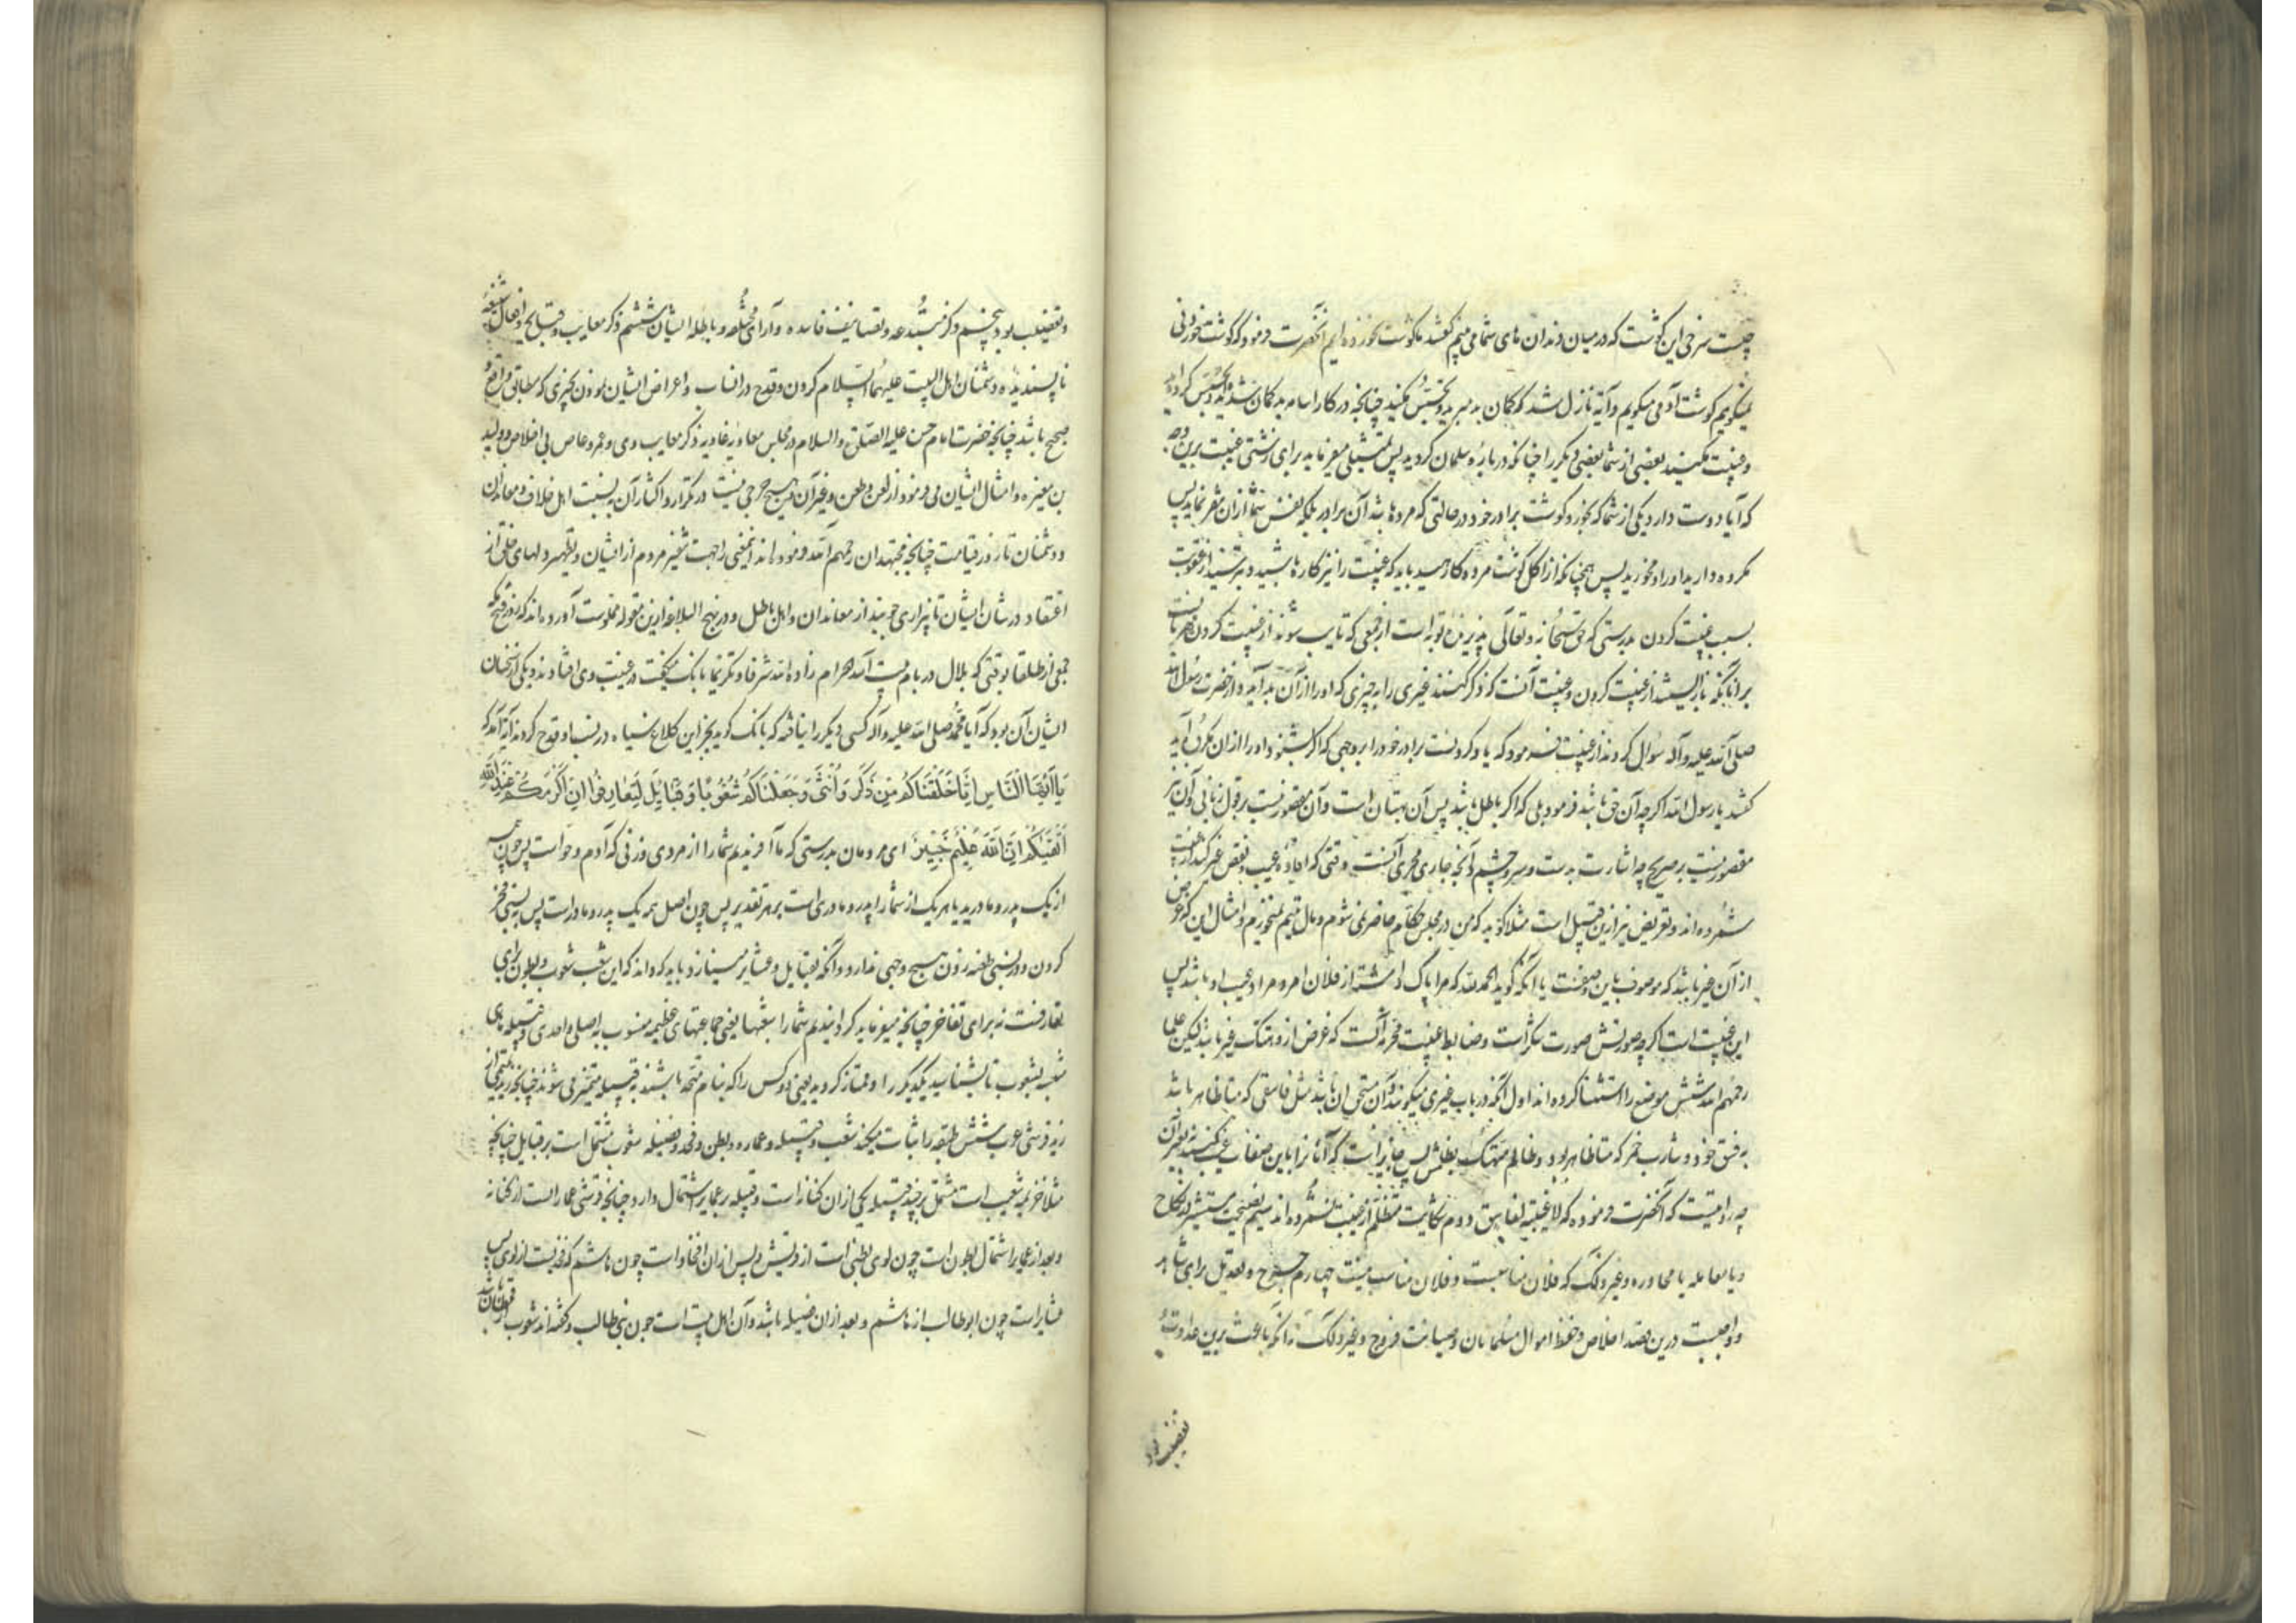 چیست سرخی این گوشت که در میان دندان های شما می بینم گفتند ما گوشت نخورده ایم آنحضرت فرمود که گوشت خوردنی
نمیگویم گوشت آدمی میگویم و آیه نازل شد که گمان بد مبرید و تجسس مکنید چنانچه در کار اسامه بد گمان شدید و تجسس کردید
و غیبت مکنید بعضی از شما بعضی دیگر را چنانکه در باره سلمان کردید پس تمثیلی میفرماید برای زشتی غیبت برین وجه
که آیا دوست دارد یکی از شما که بخورد گوشت برادر خود در حالتی که مرده باشد آن برادر بلکه نفس شما ازان تنفر نماید پس
مکروه دارید او را و مخورید پس همچنانکه از اکل گوشت مرده کارهید باید که غیبت را نیز کاره باشید و بترسید از عقوبت
بسبب غیبت کردن بدرستی که حق سبحانه و تعالی پذیرنده توبه است از جمعی که تایب شوند از غیبت کردن مهربانست
بر آنانکه باز ایستند از غیبت کردن و غیبت آنست که ذکر کنند غیری را به چیزی که او را از آن بد آید و از حضرت رسول الله
صلی الله علیه و آله سوال کردند از غیبت فرمود که یاد کردنست برادر خود را بر وجهی که اگر بشنود او را ازان مکروه آید
گفتند یا رسول الله اگر چه آن حق باشد فرمود بلی که اگر باطل باشد پس آن بهتان است و آن مقصور نیست بر قول زبانی و آن نیز
مقصور نیست بر صریح چه اشارت بدست و سر و چشم و آنچه جاری مجرای آنست وقتی که افاده عیب و نقص غیر کند از غیبت
شمرده اند و تعریض نیز ازین قبیل است مثلا گوید که من در مجلس حکام حاضر نمی شوم و مال یتیم نمیخورم و امثال این که غرض
از آن غیر باشد که موصوف باین صفت یا آنکه گوید الحمد لله که مرا پاک داشته از فلان امر و مراد عیب او باشد پس
این غیبت است اگر چه صورتش صورت شکر است و ضابط غیبت محرمه آنست که غرض ازو هتک غیر باشد لیکن علما
رحمهم الله شش موضع را استثنا کرده اند اول آنکه در باب غیری میگویند و آن مستحق آن باشد مثل فاسقی که متظاهر باشد
به فسق خود و شارب خمر که متظاهر بود و ظالم متهتک بظلمش پس جایز است که آنانرا باین صفات غیبت کنند نه بغیر آن
چه روایتست که آنحضرت فرموده که لا غیبة لفاسق دوم شکایت متظلم از غیبت نشمرده اند سیم نصیحت مستشیر در نکاح
و یا معامله یا محاوره و غیر ذلک که فلان مناسبست و فلان مناسب نیست چهارم جرح و تعدیل برای شاهد
و واجبست درین قصد اخلاص و حفظ اموال مسلمانان و صیانت فروج و غیر ذلک نه آنکه باعث برین عداوت
تعصب بود
و تعصب بود پنجم ذکر مبتدعه و تصانیف فاسده و آرای مضله و باطله ایشان ششم ذکر معایب و قبایح و افعال شنیعه
ناپسندیده دشمنان اهل البیت علیهم السلام کردن و قدح در انساب و اعراض ایشان نمودن بچیزی که مطابق واقع و
صحیح باشد چنانچه حضرت امام حسن علیه الصلوة و السلام در مجلس معاویه غاویه ذکر معایب وی و عمرو عاص بی اخلاص و ولید
بن مغیره و امثال ایشان می فرمود از لعن و طعن و غیر آن و هیچ حرجی نیست در تکرار و اکثار آن به نسبت اهل خلاف و معاندان
و دشمنان تا روز قیامت چنانچه مجتهدان رحمهم الله فرموده اند اینمعنی را جهت تنفیر مردم از ایشان و تطهیر دلهای خلق از
اعتقاد در شان ایشان تا بیزاری جویند از معاندان و اهل باطل و در نهج البلاغه ازین مقوله مملوست آورده اند که روز فتح مکه
جمعی از طلقا بوقتی که بلال در بام بیت الله الحرام زاده الله شرفا و تکریما بانک میگفت در غیبت وی افتادند و یکی از سخنان
ایشان آن بود که آیا محمد صلی الله علیه و آله کسی دیگر را نیافته که بانک گوید بجز این کلاغ سیاه در نسب او قدح کردند آیه آمد که
یَا أَیُّهَا النَّاسُ إِنَّا خَلَقْنَاکُمْ مِنْ ذَکَرٍ وَ أُنْثَی وَ جَعَلْنَاکُمْ شُعُوبًا وَ قَبَایِلَ لِتَعَارَفُوا إِنَّ أَکْرَمَکُمْ عِنْدَ اللَّهِ
أَتْقَیکُمْ إِنَّ اللَّهَ عَلِیمٌ خَبِیرٌ ای مردمان بدرستی که ما آفریدیم شما را از مردی و زنی که آدم و حواست پس چون همه
از یک پدر و مادرید یا هر یک از شما را پدر و مادری است بر هر تقدیر پس چون اصل همه یک پدر و مادر است پس به نسبی فخر
کردن و در نسبی طعنه زدن هیچ وجهی ندارد و آنکه بقبایل و عشایر مینازد باید که داند که این شعب شعوب و بطون برای
تعارفست نه برای تفاخر چنانچه میفرماید که گردانیدیم شما را شعبها یعنی جماعتهای عظیمه منسوب به اصلی واحد و قبیله های
شعب بشعوب تا بشناسید یکدیگر را و ممتاز گردید یعنی دو کس را که بنام متحد باشند به قبیله متمیز می شوند چنانچه زید تمیمی از
زید قرشی عرب شش طبقه را اثبات میکند شعب و قبیله و عماره و بطن و فخذ و فصیله شعوب مشتمل است بر قبایل چنانچه
مثلا خزیمه شعب است مشتمل بر چند قبیله یکی ازان کنانه است و قبیله بر عمایر اشتمال دارد چنانچه قرشی عماراست از کنانه
و بعد از عمایر اشتمال بطون است چون لوی بطنی است از قریش و پس ازان افخاذ است چون هاشم که فخذیست از لوی پس
عشایر است چون ابو طالب از هاشم و بعد ازان فصیله باشد و آن اهل بیت است چون بنی طالب و گفته اند شعوب